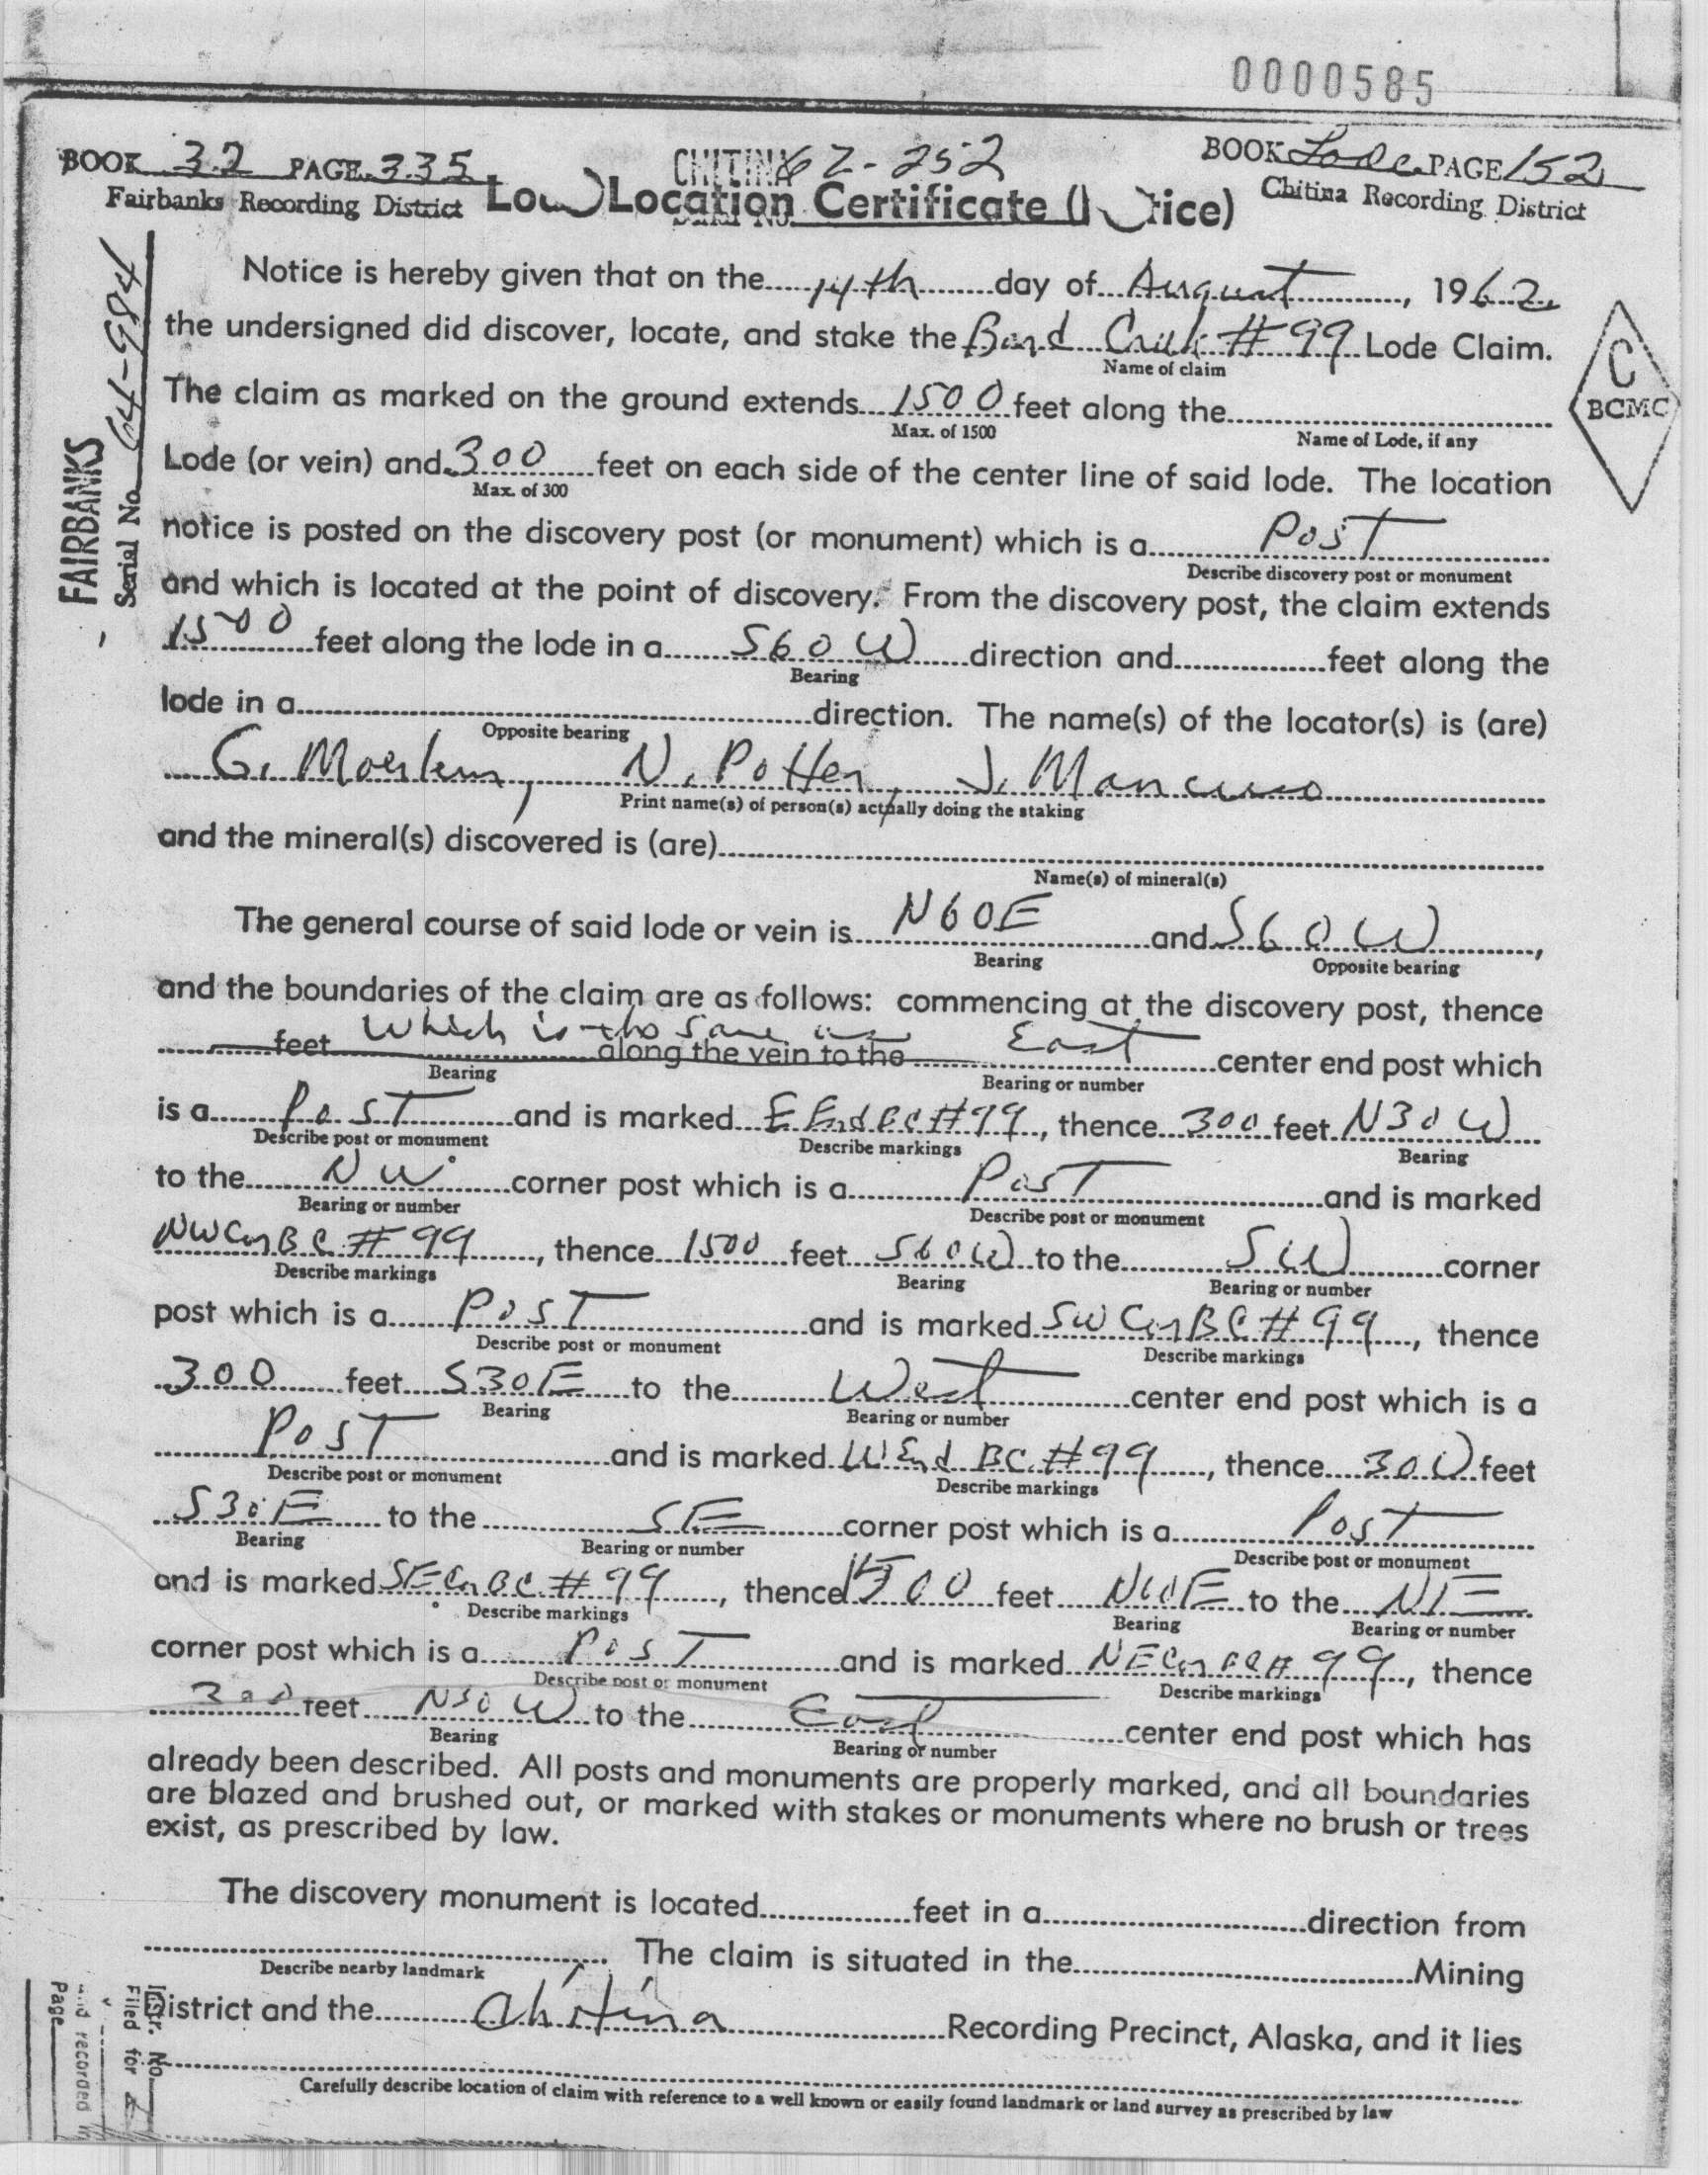 0000585
BOOK 32 PAGE 335 CHITINA 62-252 BOOK Lode PAGE 152
Fairbanks Recording District Location Certificate ( tice) Chitina Recording District
FAIRBANKS
Serial No. 64-984
Notice is hereby given that on the 14th day of August, 1962,
the undersigned did discover, locate, and stake the Bond Creek #99 Lode Claim.
Name of claim
The claim as marked on the ground extends 1500 feet along the
Max. of 1500 Name of Lode, if any
C
BCMC
Lode (or vein) and 300 feet on each side of the center line of said lode. The location
Max. of 300
notice is posted on the discovery post (or monument) which is a Post
Describe discovery post or monument
and which is located at the point of discovery. From the discovery post, the claim extends
1500 feet along the lode in a S60W direction and feet along the
Bearing
lode in a direction. The name(s) of the locator(s) is (are)
Opposite bearing
G. N. Potter, J. Mancuso
Print name(s) of person(s) actually doing the staking
and the mineral(s) discovered is (are)
Name(s) of mineral(s)
The general course of said lode or vein is N60E and S60W,
Bearing Opposite bearing
and the boundaries of the claim are as follows: commencing at the discovery post, thence
which is the same as
feet along the vein to the East center end post which
Bearing Bearing or number
is a Post and is marked E End BC #99, thence 300 feet N30W
Describe post or monument Describe markings Bearing
to the NW corner post which is a Post and is marked
Bearing or number Describe post or monument
NW Cor BC #99, thence 1500 feet S60W to the SW corner
Describe markings Bearing Bearing or number
post which is a Post and is marked SW Cor BC #99, thence
Describe post or monument Describe markings
300 feet S30E to the West center end post which is a
Bearing Bearing or number
Post and is marked W End BC #99, thence 300 feet
Describe post or monument Describe markings
S30E to the SE corner post which is a Post
Bearing Bearing or number Describe post or monument
and is marked SE Cor BC #99, thence 1500 feet N60E to the NE
Describe markings Bearing Bearing or number
corner post which is a Post and is marked NE Cor BC # 99, thence
Describe post or monument Describe markings
300 feet N30W to the East center end post which has
Bearing Bearing or number
already been described. All posts and monuments are properly marked, and all boundaries
are blazed and brushed out, or marked with stakes or monuments where no brush or trees
exist, as prescribed by law.
The discovery monument is located feet in a direction from
The claim is situated in the Mining
Describe nearby landmark
District and the Chitina Recording Precinct, Alaska, and it lies
Carefully describe location of claim with reference to a well known or easily found landmark or land survey as prescribed by law
Instr. No
Filed for
and recorded in
Page